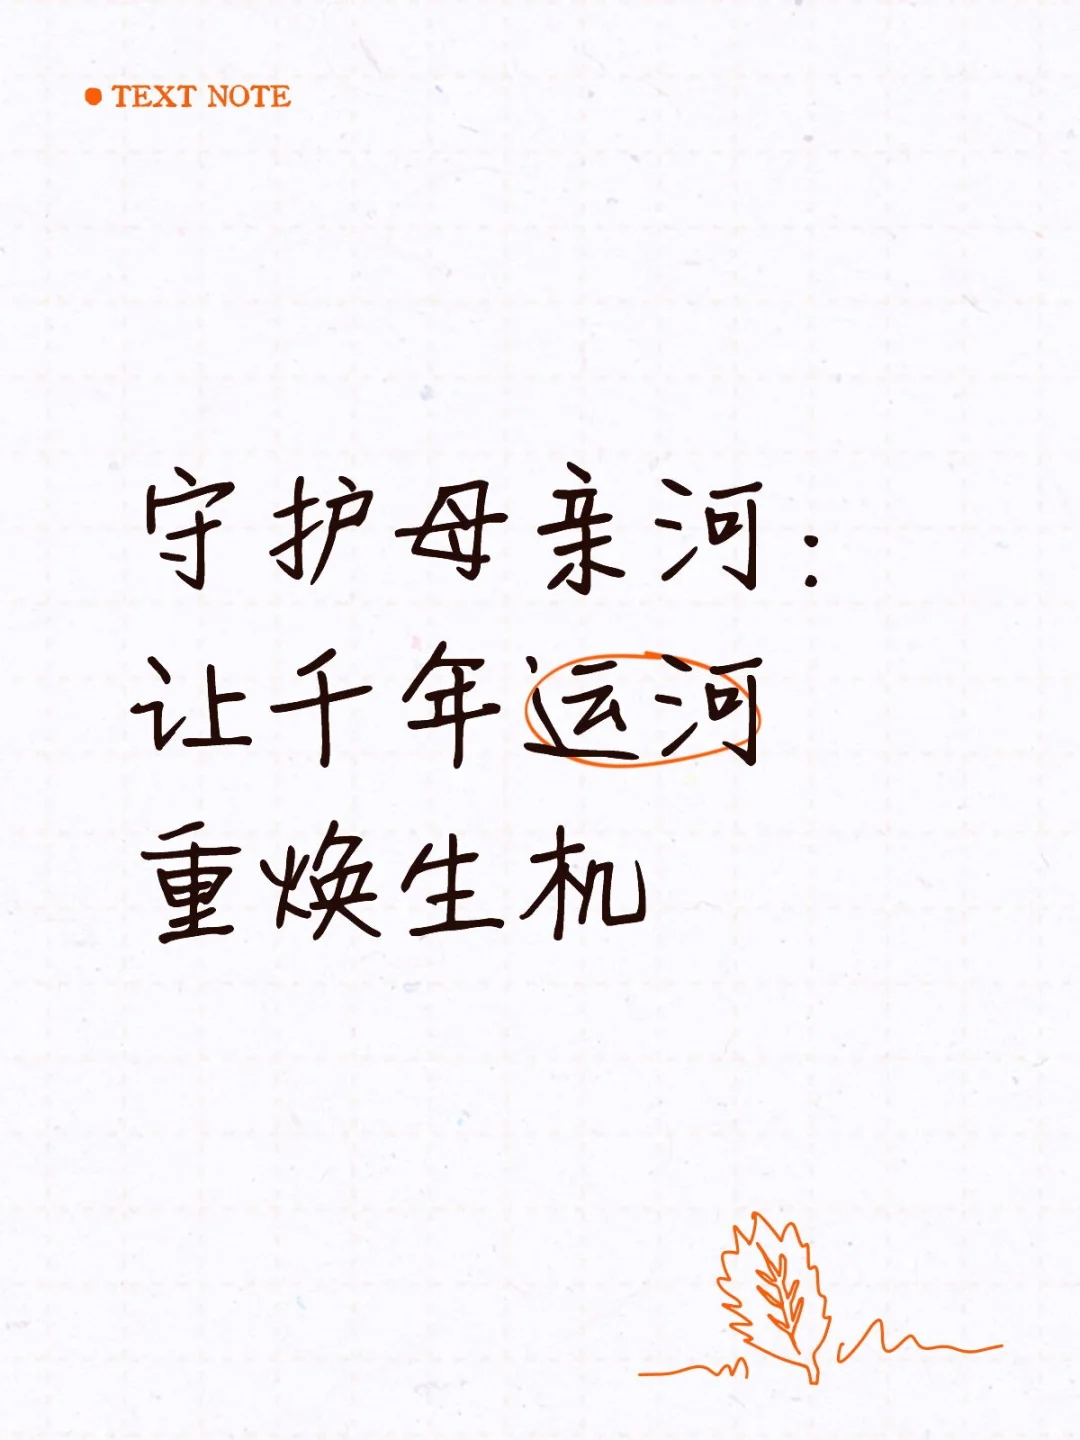 TEXT NOTE
守护母亲河：
让千年运河
重焕生机